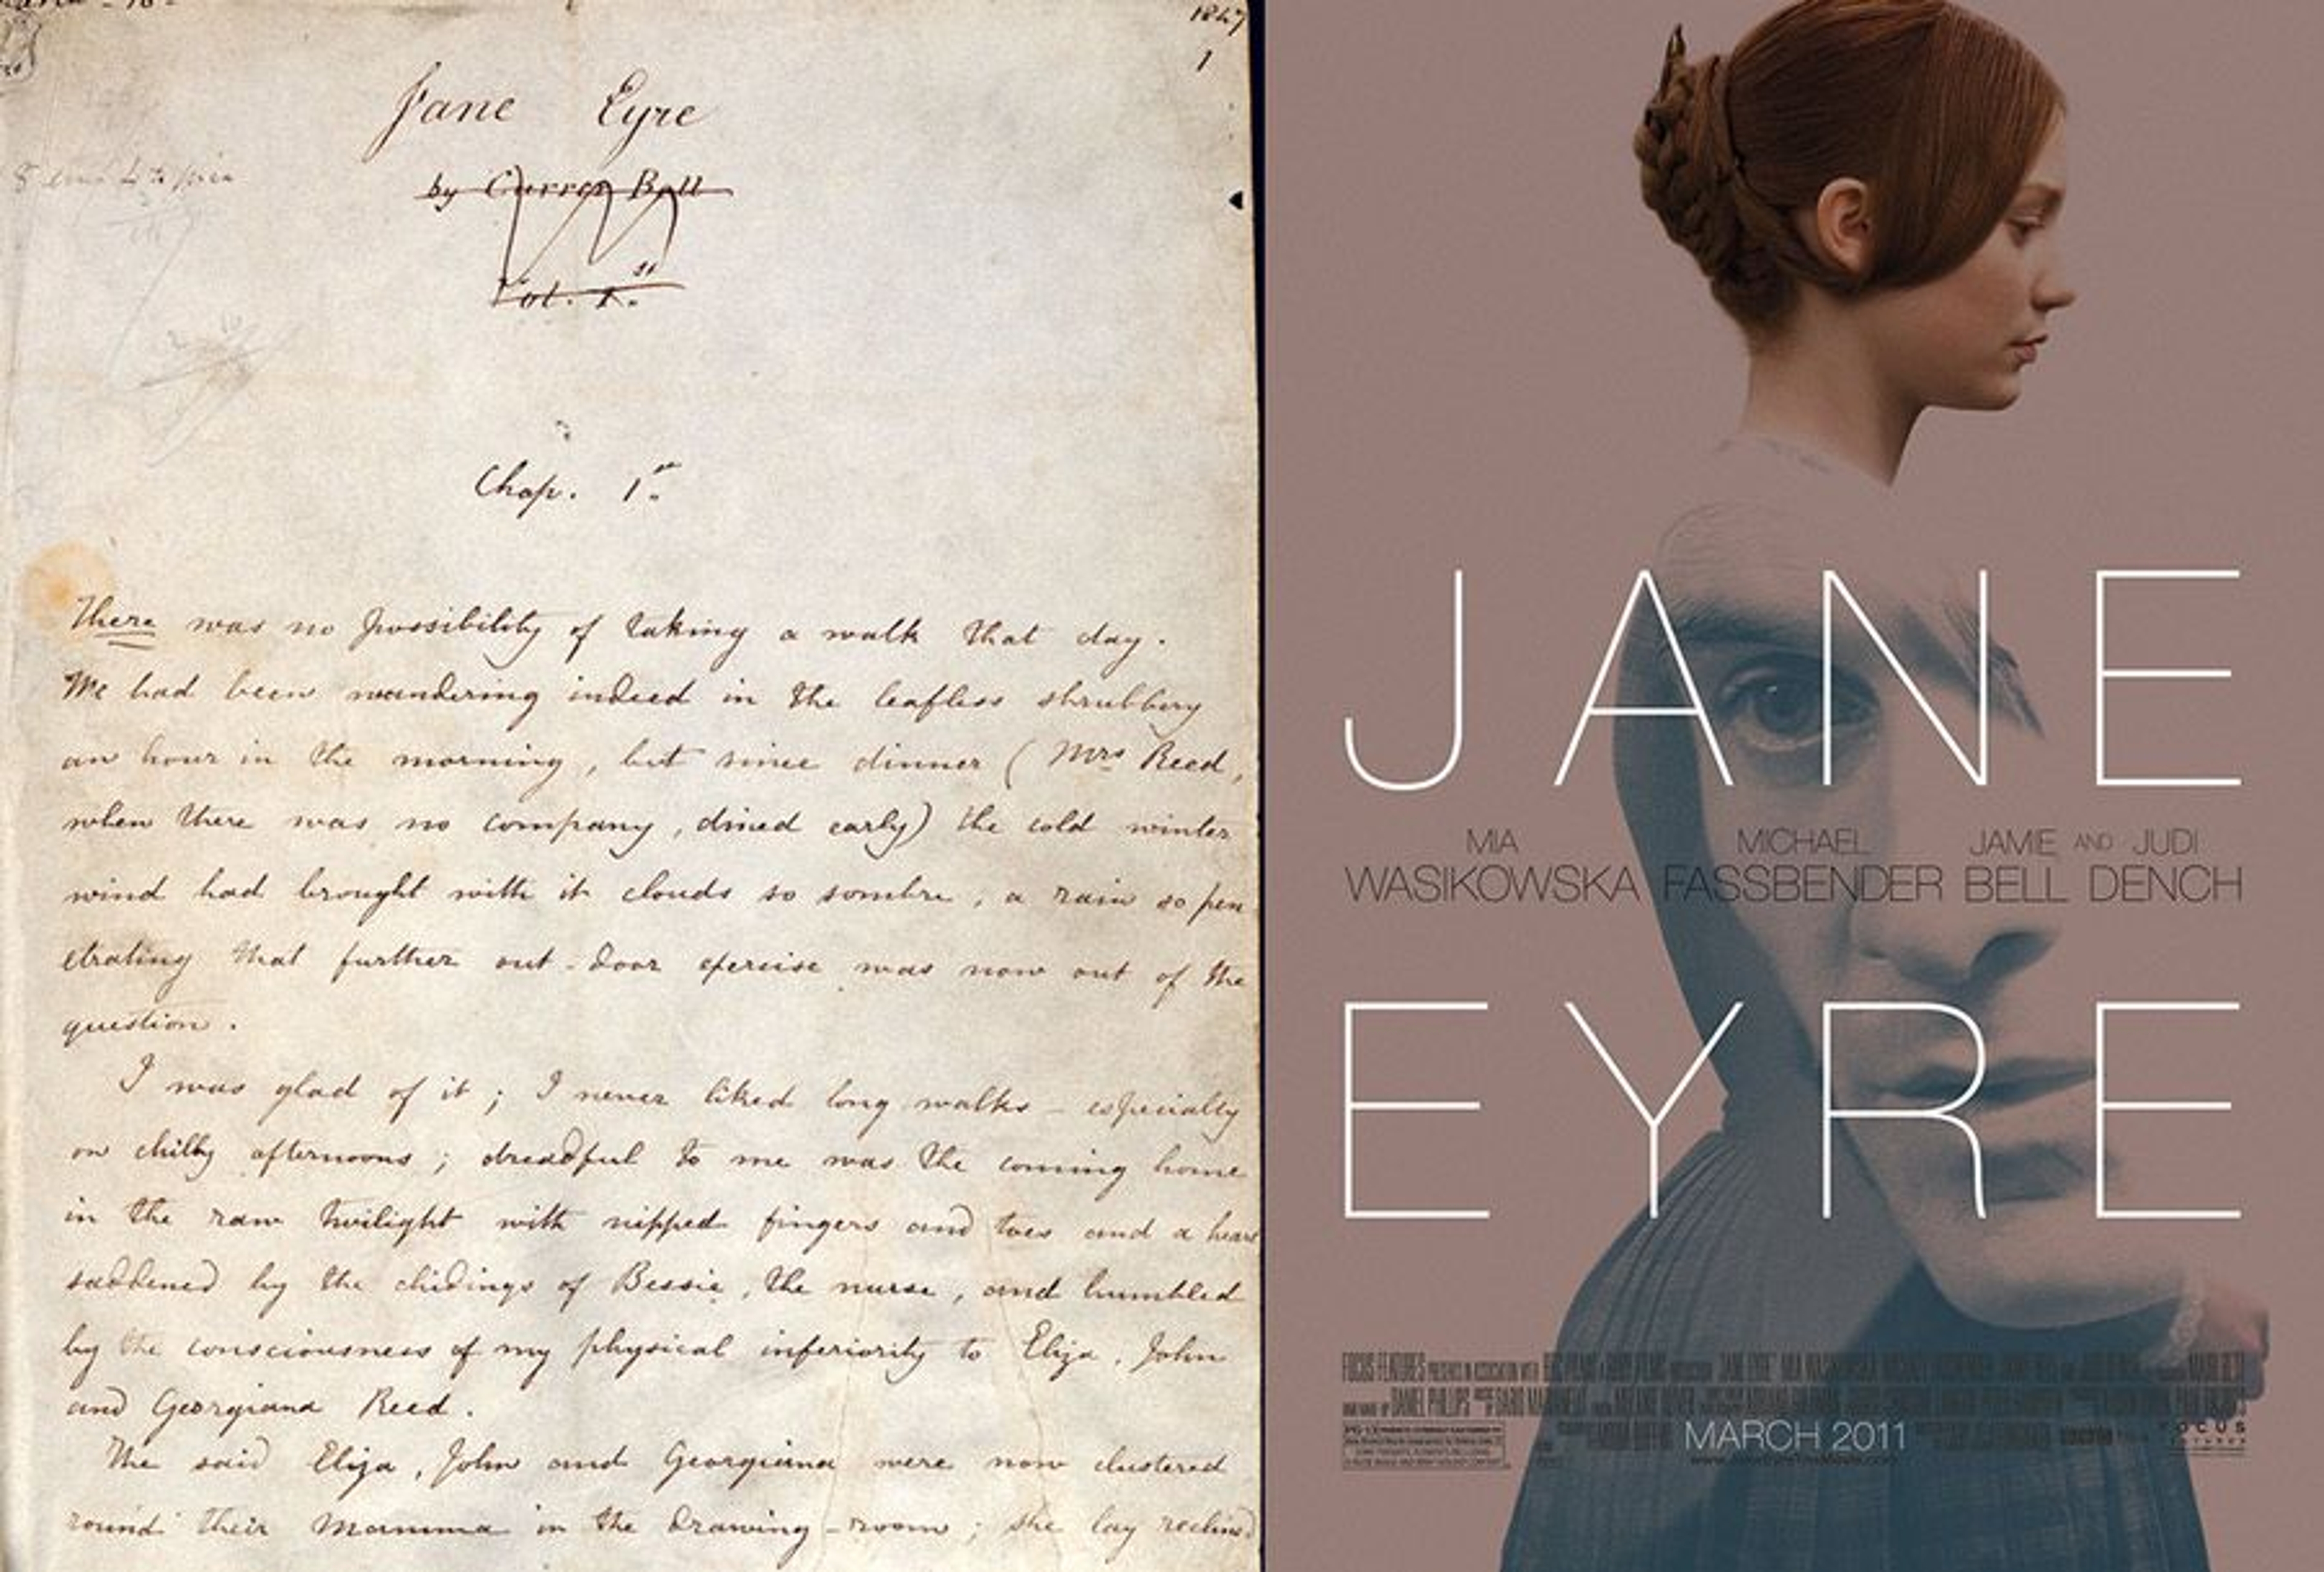 1847
1
Jane Eyre
by Currer Bell
Vol. 1.st
Chap. 1st
There was no possibility of taking a walk that day.
We had been wandering indeed in the leafless shrubbery
an hour in the morning, but since dinner (Mrs Reed,
when there was no company, dined early) the cold winter
wind had brought with it clouds so sombre, a rain so pen
etrating that further out-door exercise was now out of the
question.
I was glad of it; I never liked long walks - especially
on chilly afternoons; dreadful to me was the coming home
in the raw twilight with nipped fingers and toes and a heart
saddened by the chidings of Bessie, the nurse, and humbled
by the consciousness of my physical inferiority to Eliza, John
and Georgiana Reed.
The said Eliza, John and Georgiana were now clustered
round their Mamma in the drawing-room; she lay reclined
JANE
MIA WASIKOWSKA MICHAEL FASSBENDER JAMIE BELL AND JUDI DENCH
EYRE
FOCUS FEATURES PRESENTS IN ASSOCIATION WITH BBC FILMS
DANIEL PHILLIPS
MARCH 2011
FOCUS